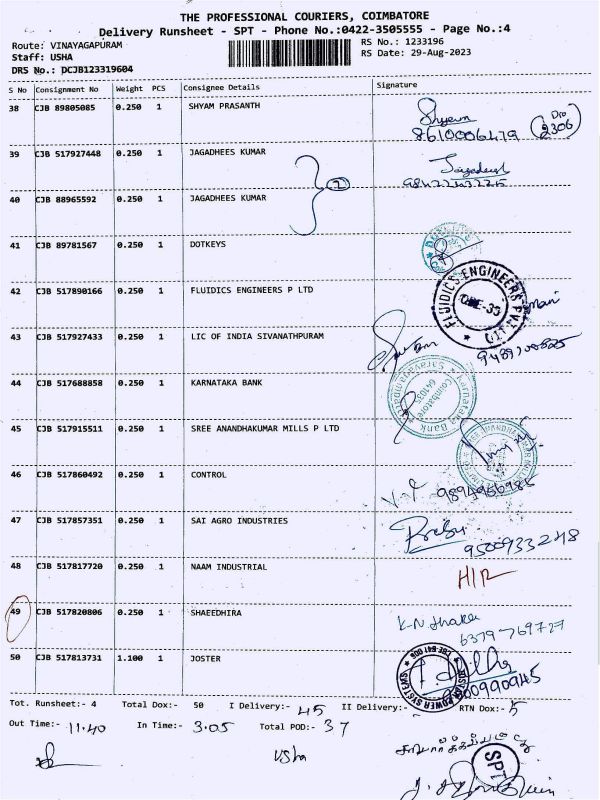 THE PROFESSIONAL COURIERS, COIMBATORE
Delivery Runsheet - SPT - Phone No.:0422-3505555 - Page No.:4
Route: VINAYAGAPURAM RS No.: 1233196
Staff: USHA RS Date: 29-Aug-2023
DRS No.: DCJB123319604
S No Consignment No Weight PCS Consignee Details Signature
38 CJB 89805085 0.250 1 SHYAM PRASANTH Shyam
8610006479 2306
39 CJB 517927448 0.250 1 JAGADHEES KUMAR
2
40 CJB 88965592 0.250 1 JAGADHEES KUMAR
41 CJB 89781567 0.250 1 DOTKEYS
42 CJB 517890166 0.250 1 FLUIDICS ENGINEERS P LTD FLUIDICS ENGINEERS PVT LTD CBE-35
43 CJB 517927433 0.250 1 LIC OF INDIA SIVANATHPURAM
44 CJB 517688858 0.250 1 KARNATAKA BANK Karnataka Bank Coimbatore
45 CJB 517915511 0.250 1 SREE ANANDHAKUMAR MILLS P LTD
46 CJB 517860492 0.250 1 CONTROL
9894956985
47 CJB 517857351 0.250 1 SAI AGRO INDUSTRIES
9500933248
48 CJB 517817720 0.250 1 NAAM INDUSTRIAL
49 CJB 517820806 0.250 1 SHAEEDHIRA
6379769727
50 CJB 517813731 1.100 1 JOSTER
Tot. Runsheet:- 4 Total Dox:- 50 I Delivery:- 45 II Delivery:- RTN Dox:- 5
Out Time:- 11.40 In Time:- 3.05 Total POD:- 37
Usha SPT